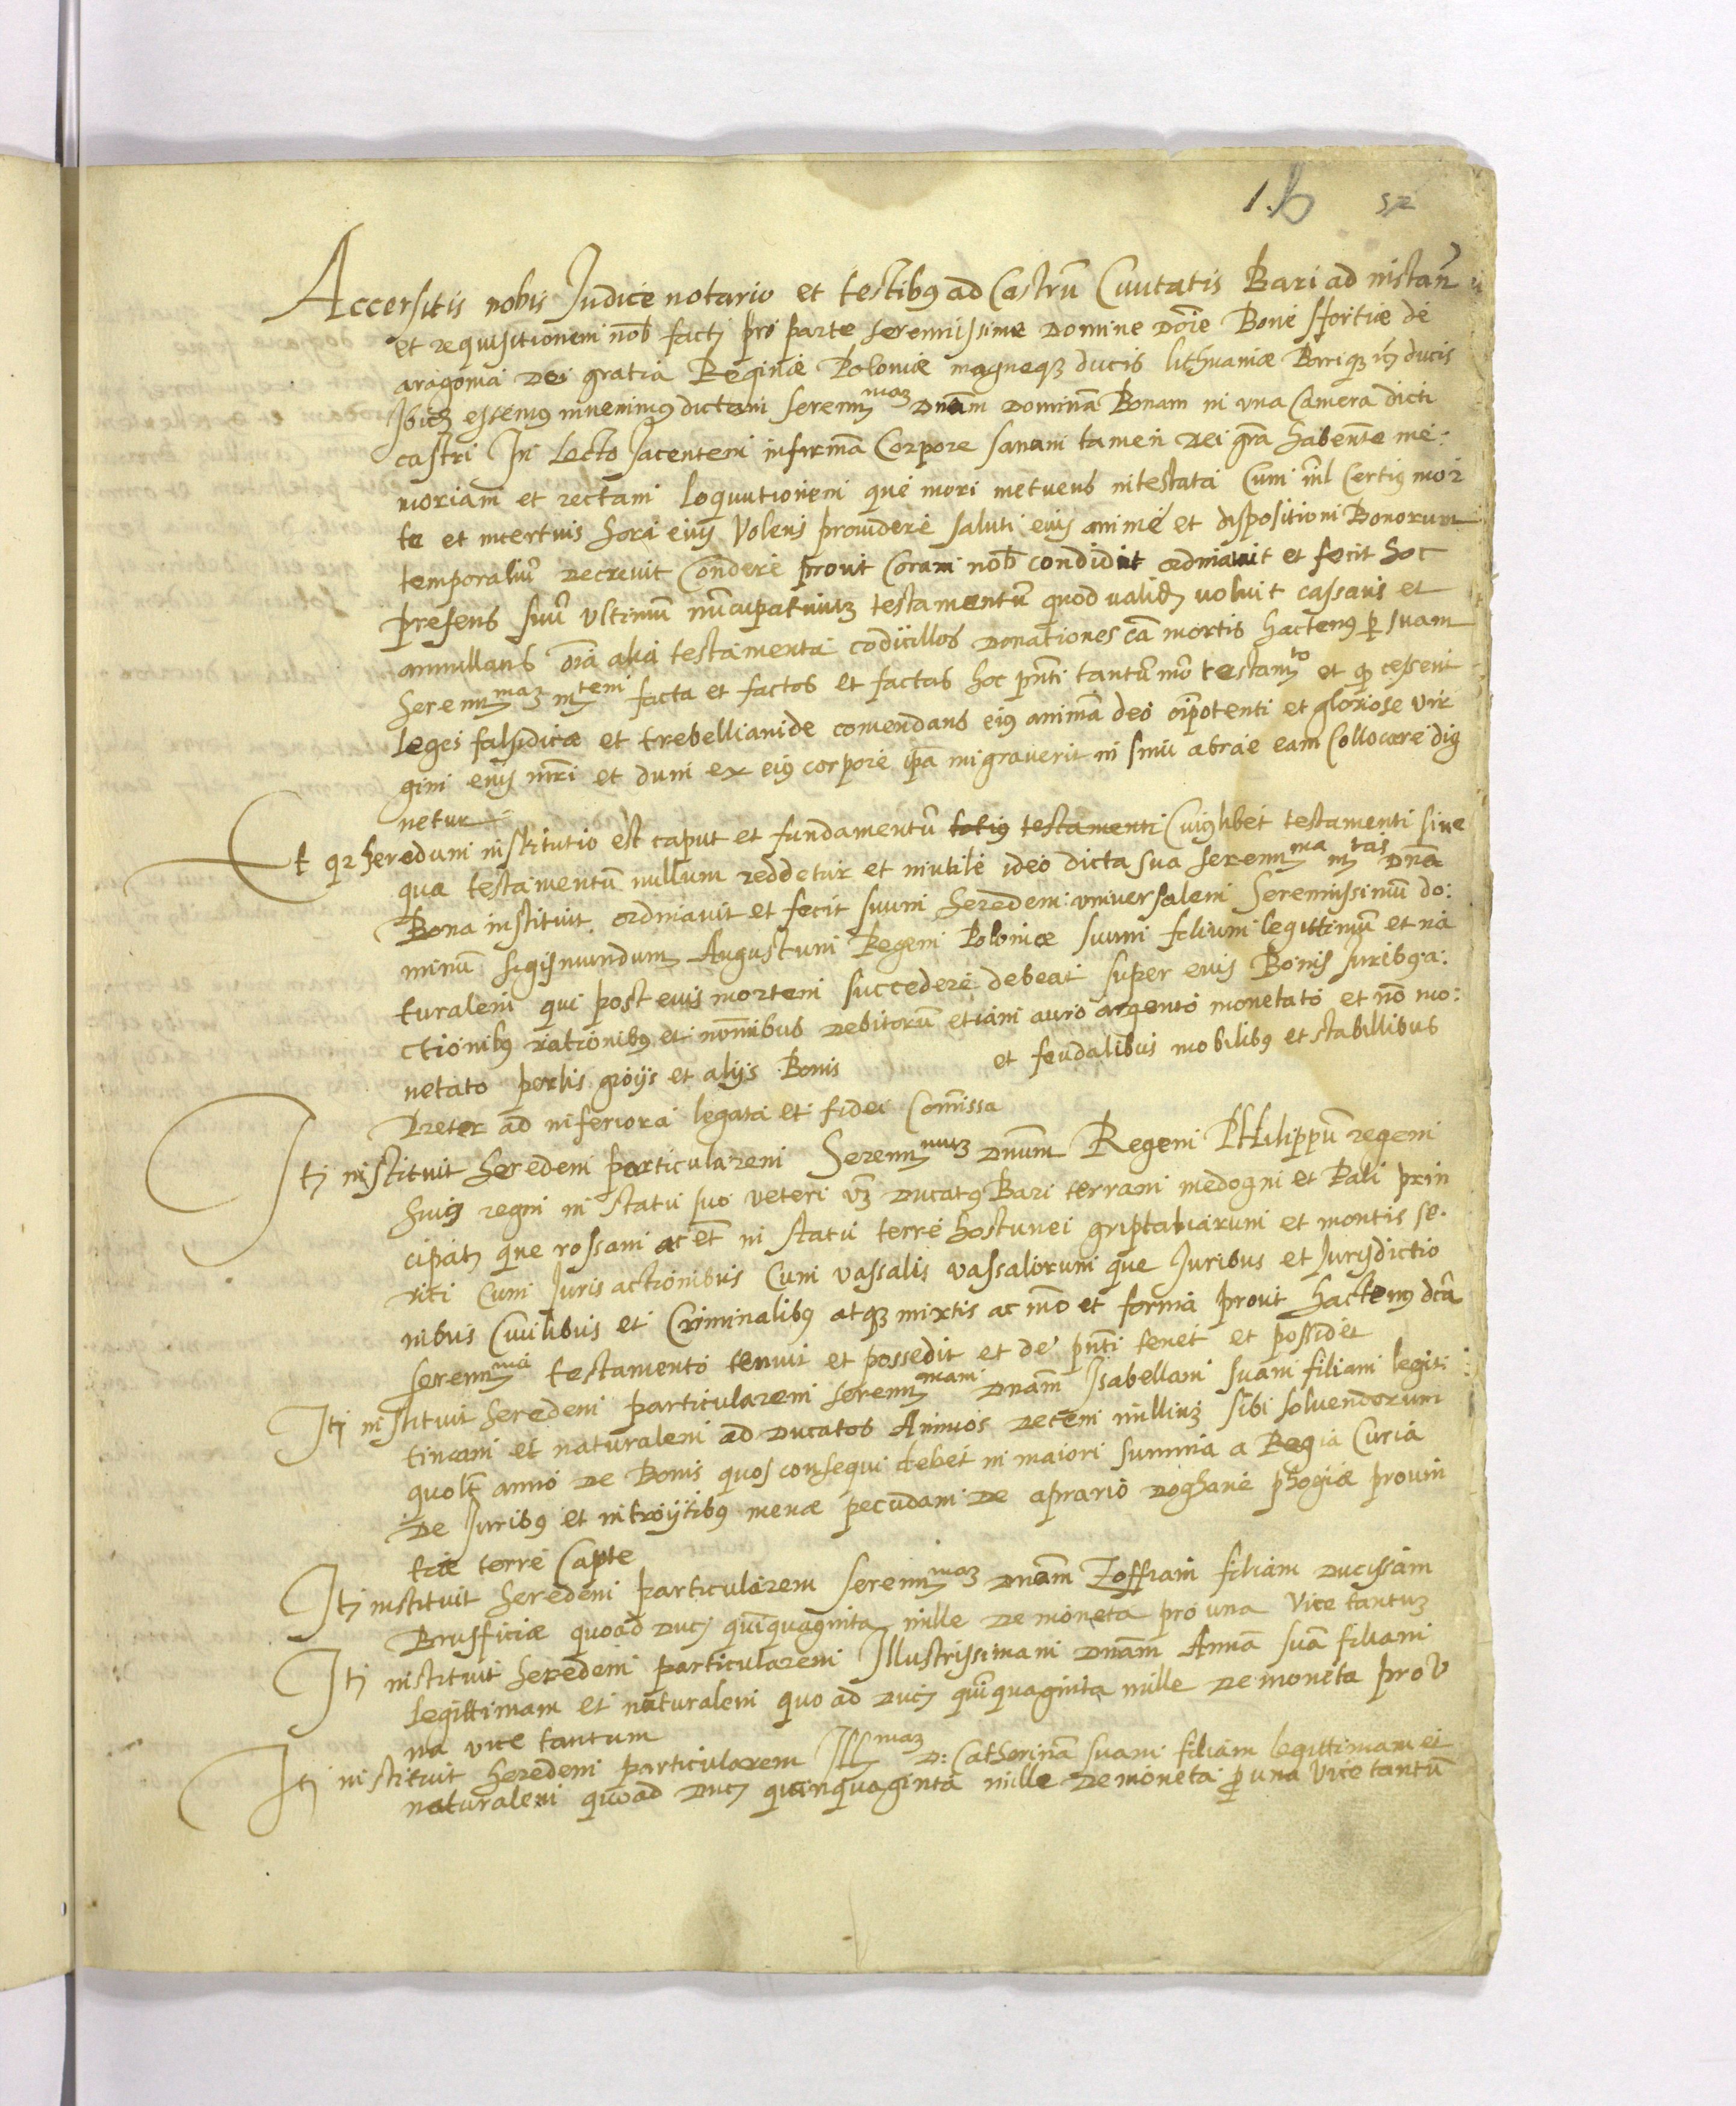 1.b 52
Accersitis nobis Judice notario et testibꝯ ad Castrũ Ciuitatis Bari ad instañ
et requisitionem nob̃ factꝫ pro parte serenissime Domine Dõie Bone sfortiæ de
aragonia Dei gratia Reginæ Poloniæ magneqꝫ ducis lithuaniæ Bariqꝫ ducis
Ibiqꝫ essemꝯ inuenimꝯ dictam serenmaꝫ Dnam̃ Dominã Bonam in una Camera dicti
castri In Lecto Jacentem infirmã Corpore sanam tamen Dei gr̃a habentẽ me:
moriam et rectam loqutionem que mori metuens intestata Cum nil̃ Certiꝯ mor
te et incertius hora eiꝯ Volens prouidere saluti eiꝯ anime et dispositioni Bonorum
temporaliũ Decreuit Cõndere prout Coram nob̃ condidit ordinauit et fecit hoc
presens suũ Vltimũ nũcupatiuuꝫ testamentũ quod validꝫ uoluit cassans et
annullans oĩa alia testamenta codicillos Donationes cã mortis hactenꝯ ꝑ suam
serenmaꝫ mtem facta et factos et factas hoc pñti tantũmõ testamto et qꝫ cessent
leges falsidicæ et trebellianide comendans eiꝯ animã deo oĩpotenti et gloriose vir
gini eiꝯ mr̃i et dum ex eiꝯ corpore ip̃a migrauerit in sinu abrae eam Collocare dig
netur
Et qꝛ heredum institutio est caput et fundamentũ totiꝯ testamenti Cuiꝯlibet testamenti sine
qua testamentũ nullum reddetur et inutile ideo dicta sua serenma mtas Dna
Bona instituit ordinauit et fecit suum heredem uniuersalem Serenissimũ do:
minũ sigismundum Augustum Regem Poloniæ suum filium legittimũ et na
turalem qui post eius mortem succedere debeat super eius Bonis Juribꝯ a:
ctionibꝯ rationibꝯ et nominibus Debitorũ etiam auro argento monetato et nõ mo:
netato perlis gioijs et alijs Bonis et feudalibus mobilibꝯ et stabillibus
Preter ad inferiora legata et fidei Comissa
Itꝫ instituit heredem particularem Serenmuꝫ Dnum̃ Regem PHilippũ regem
huiꝯ regni in statu suo veteri vꝫ Ducatꝯ Bari terram medogni et Pali prin
cipatꝫ que rossani ac et̃ in statu terre hostunei griptaliarum et montis se.
riti Cum Juris actionibus Cum vassalis vassaliorum que Juribus et Jurisdictio
nibus Ciuilibus et Criminalibꝯ atqꝫ mixtis ac mõ et forma prout hactenꝯ dcã
serenma testamento tenuit et possedit et de pñti tenet et possidet
Itꝫ instituit heredem particularem serenmam Dnam̃ Isabellam suam filiam legiti
timam et naturalem ad Ducatos Annuos Decem milliuꝫ sibi soluendorum
quolt̃ anno De Bonis quos consequi debet in maiori summa a Regia Curia
De Juribꝯ et introijtibꝯ menæ pecudam De aprario Doghane phogiæ prouin
tiæ terre Capte
Itꝫ instituit heredem particularem serenmaꝫ Dnam̃ Zoffiam filiam Ducissam
Brusficiæ quoad Ducꝫ quĩquaginta mille De moneta pro una Vice tantuꝫ
Itꝫ instituit heredem particularem Illustrissimam Dnam̃ Annã suã filiam
legittimam et naturalem quo ad Ducꝫ quĩquaginta mille De moneta pro V
na vice tantum
Itꝫ instituit heredem particularem Illmaꝫ D: Catherinã suam filiam legittimam et
naturalem quoad Ducꝫ quinquaginta mille De moneta ꝓ una Vice tantũ